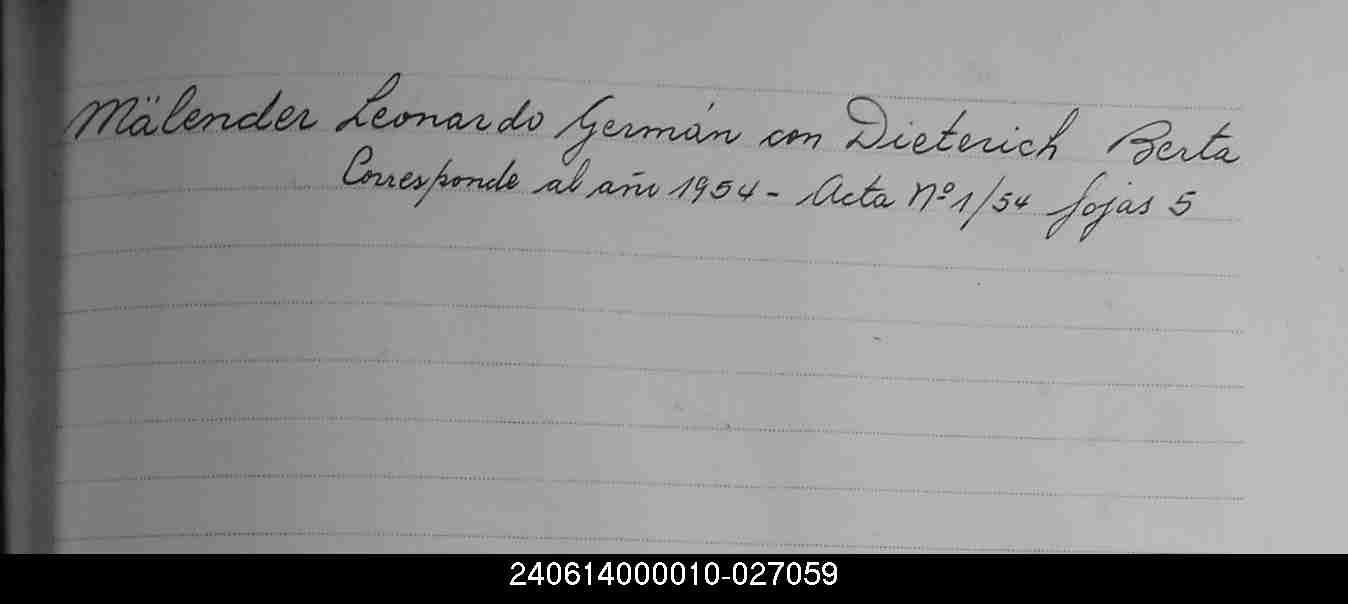 Mälender Leonardo Germán con Dieterich Berta
Corresponde al año 1954 - Acta Nº 1/54 fojas 5
240614000010-027059